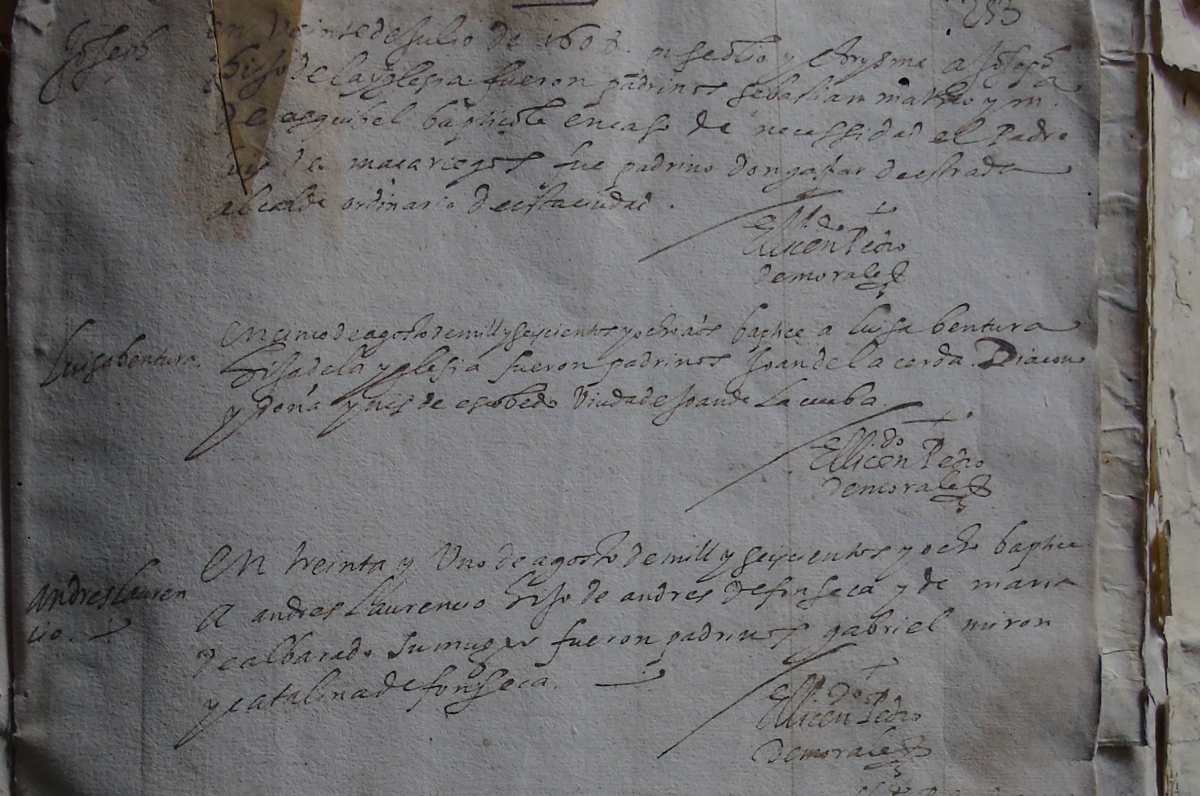 253
Joseph
en Veinte de Julio de 1608. puse olio y chrysma a Joseph
hijo de la yglesia fueron padrinos sebastian matheo y m.ª
de esquibel baptizole en caso de necessidad el Padre
de macariegos fue padrino don gaspar de estrada
alcalde ordinario de esta ciudad.
El licen.do Pedro
de morales
Luisa bentura.
en cinco de agosto de mill y seiscientos y ocho años baptice a luisa bentura
hija de la yglesia fueron padrinos Joan de la cerda. Diacono
y doña ynes de escobedo Viuda de Joan de la cueba.
El licen.do Pedro
de morales
Andres Lauren
cio.
en treinta y Uno de agosto de mill y seiscientos y ocho baptice
A andres Laurencio hijo de andres de fonseca y de maria
de albarado su muger fueron padrinos gabriel miron
y catalina de fonseca.
El licen.do Pedro
de morales